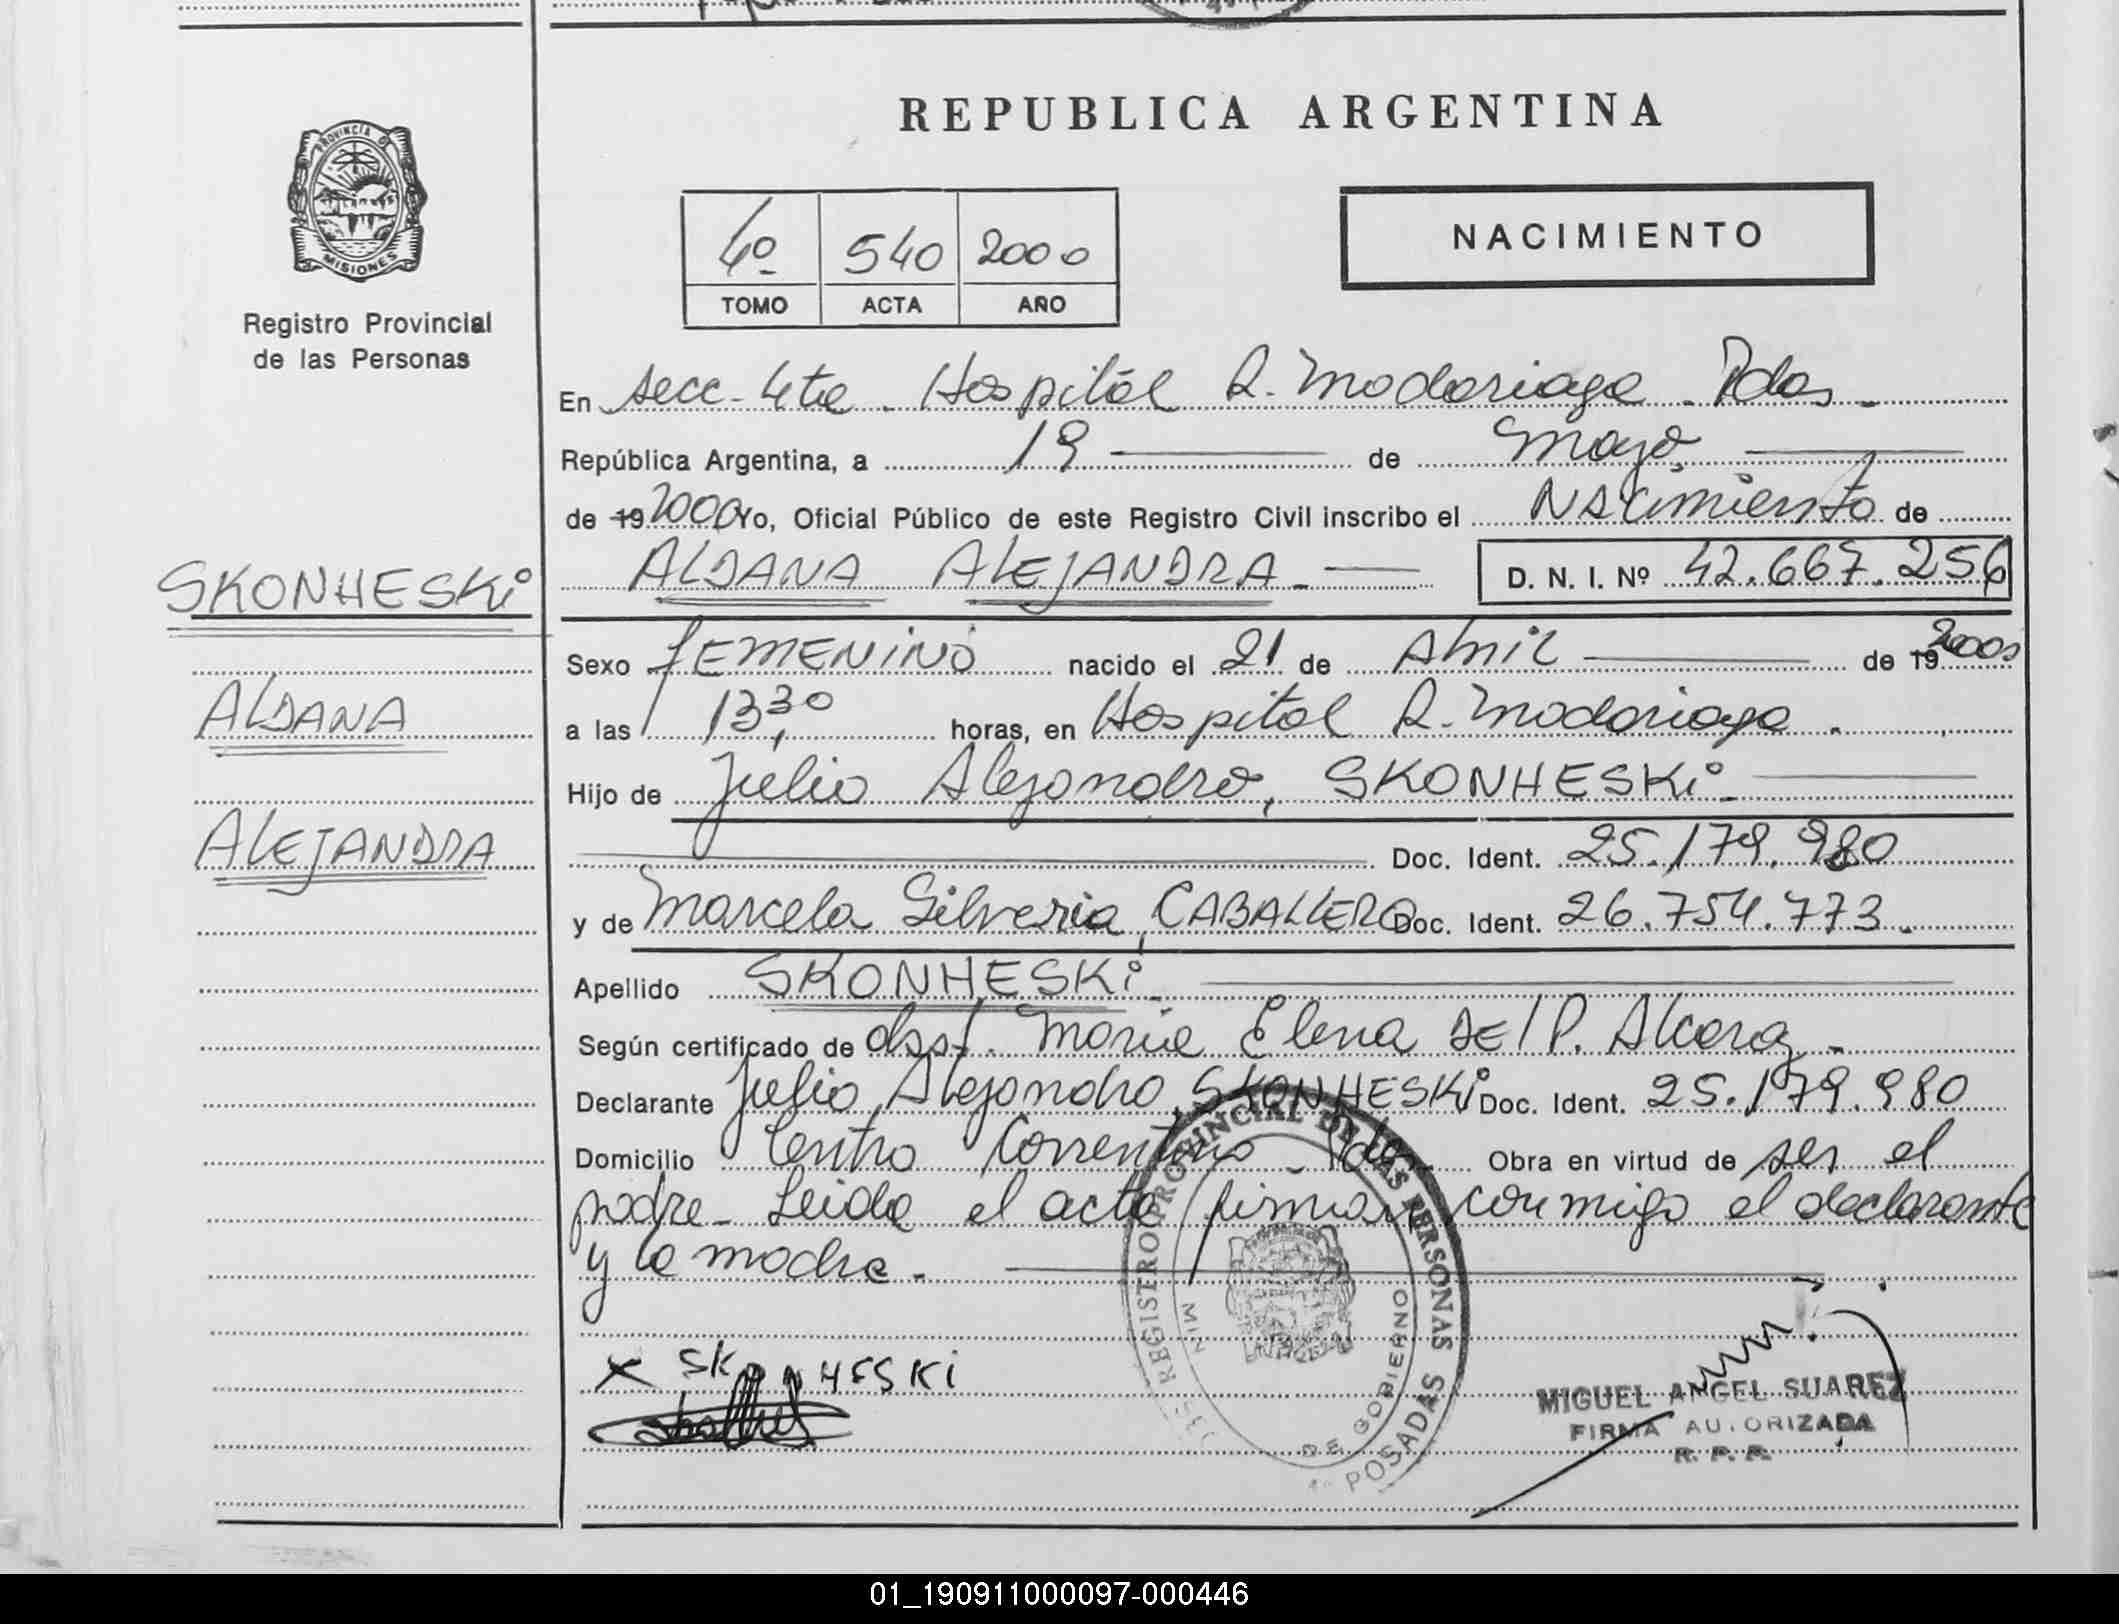 REPUBLICA ARGENTINA
PROVINCIA DE
MISIONES
Registro Provincial
de las Personas
4º 540 2000
TOMO ACTA AÑO
NACIMIENTO
En Secc. 4ta. Hospital R. Madariaga. Pdas.
República Argentina, a 19 de Mayo
de 19 2000 Yo, Oficial Público de este Registro Civil inscribo el Nacimiento de
ALDANA ALEJANDRA D. N. I. Nº 42.667.256
SKONHESKi
ALDANA
ALEJANDRA
Sexo FEMENiNO nacido el 21 de Abril de 19 2000
a las 13,30 horas, en Hospital R. Madariaga.
Hijo de Julio Alejandro, SKONHESKi
Doc. Ident. 25.179.980
y de Marcela Silveria, CABALLERO Doc. Ident. 26.754.773.
Apellido SKONHESKi
Según certificado de obst. Maria Elena DEl P. Alcaraz
Declarante Julio Alejandro, SKONHESKi Doc. Ident. 25.179.980
Domicilio Centro Correntino. Pdas. Obra en virtud de ser el
padre. Leida el acta firman conmigo el declarante
y la madre.
REGISTRO PROVINCIAL DE LAS PERSONAS
MIN. DE GOBIERNO
POSADAS
X SKONHESKi
MIGUEL ANGEL SUAREZ
FIRMA AUTORIZADA
R. P. P.
01_190911000097-000446